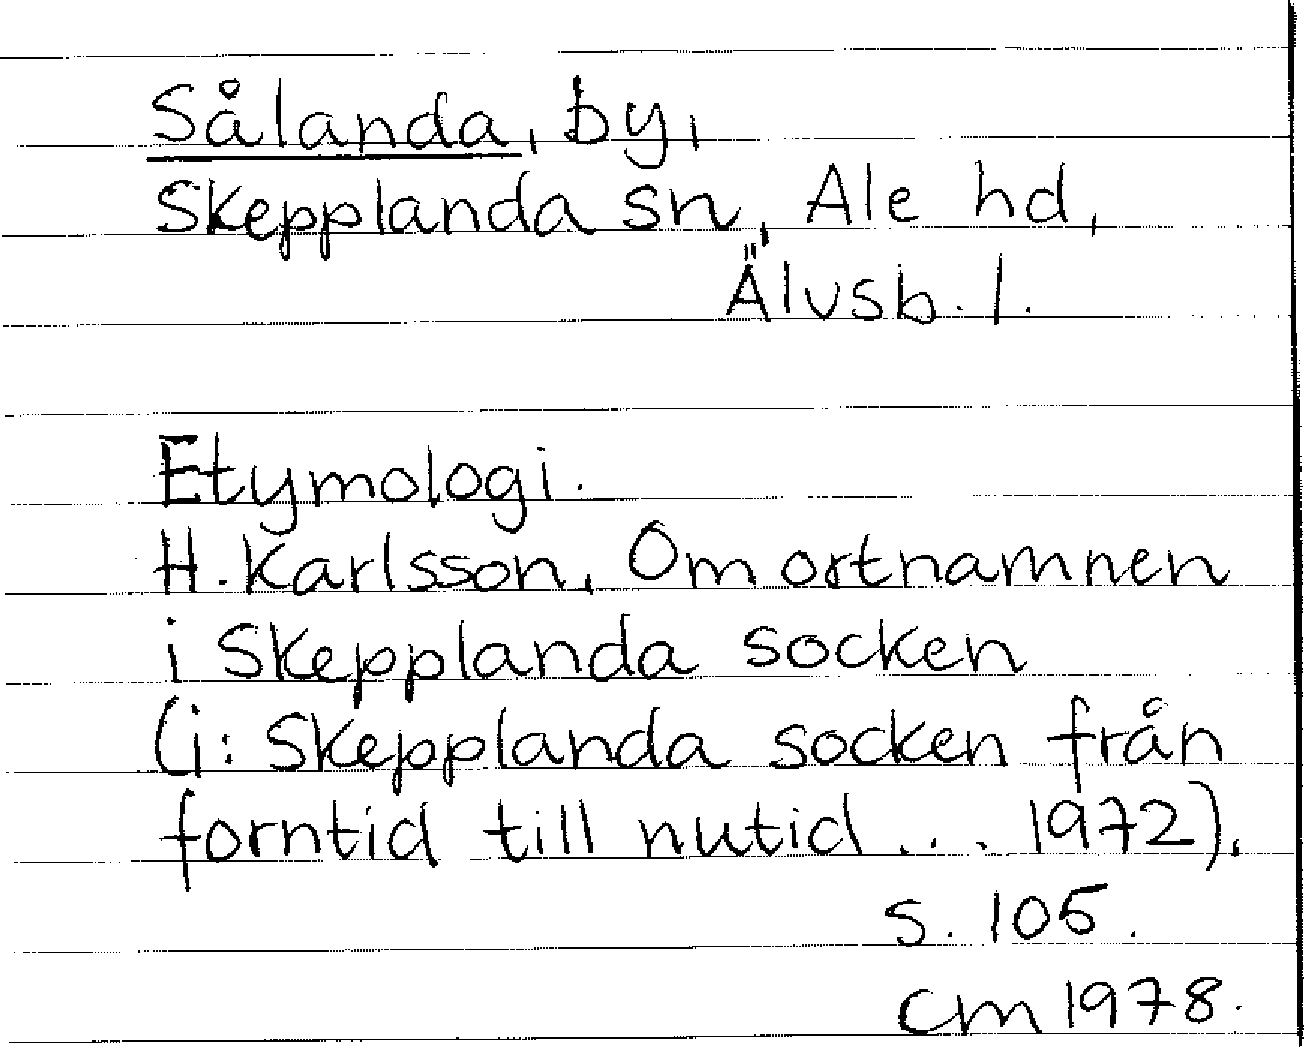 Sålanda, by,
Skepplanda sn, Ale hd,
Älvsb. l.
Etymologi.
H. Karlsson, Om ortnamnen
i Skepplanda socken
(i: Skepplanda socken från
forntid till nutid ... 1972).
s. 105.
CM 1978.